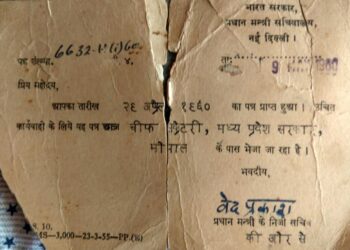 भारत सरकार,
प्रधान मन्त्री सचिवालय,
नई दिल्ली ।
पत्र संख्या, 6632-
प्रिय महोदय,
आपका तारीख २९ अप्रैल १९६० का पत्र प्राप्त हुआ। उचित
कार्यवाही के लिये वह पत्र चीफ़ मध्य प्रदेश सरकार,
भोपाल के पास भेजा जा रहा है ।
भवदीय,
वेद प्रकाश
प्रधान मन्त्री के निजी सचिव
की ओर से
S. 10.
MS—3,000—23-3-55—PP.(B)